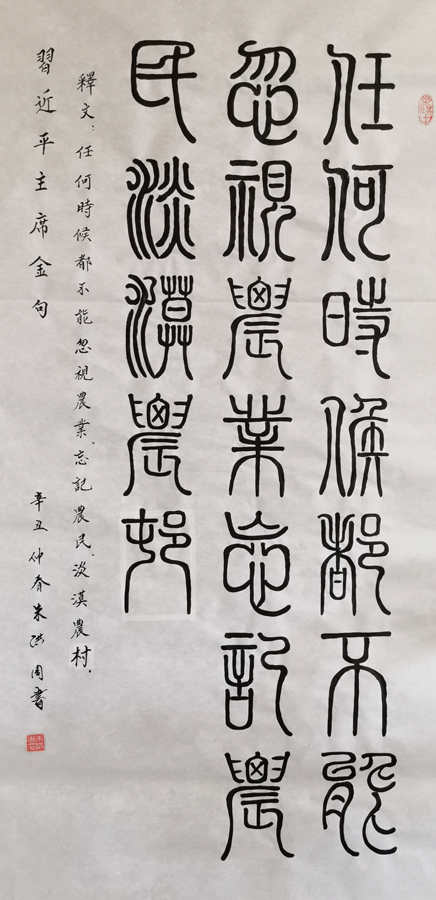 任何時候都不能
忽視農業忘記農
民淡漠農邨
釋文：任何時候都不能忽視農業、忘記農民、淡漠農村．
習近平主席金句
辛丑仲春朱洪周書